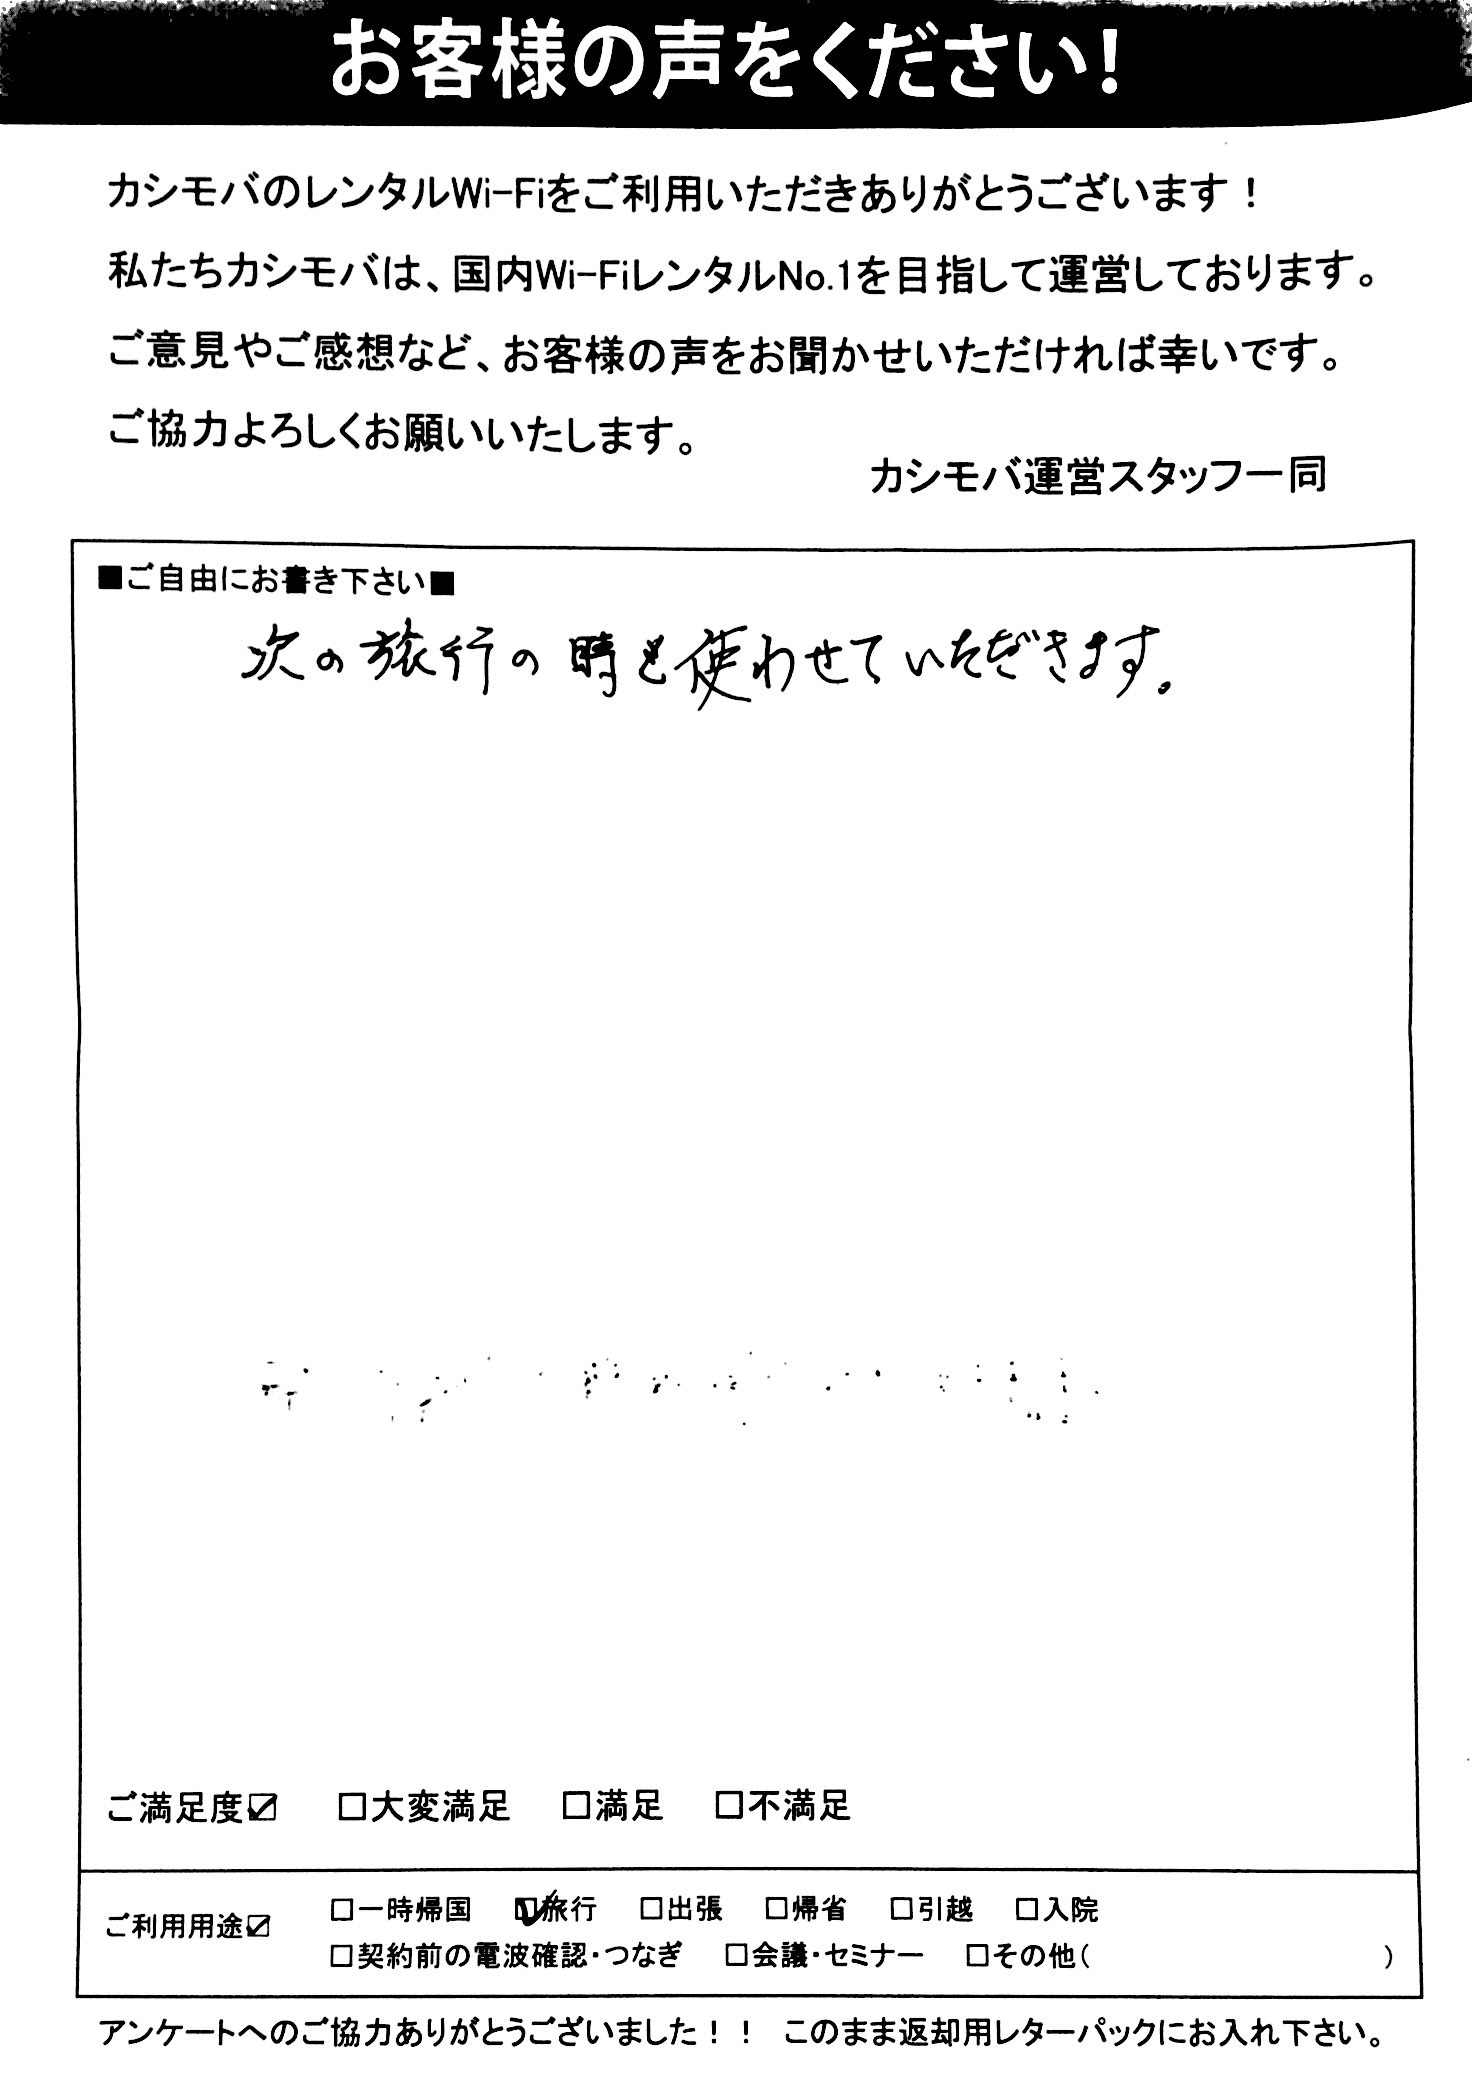 お客様の声をください!
カシモバのレンタルWi-Fiをご利用いただきありがとうございます!
私たちカシモバは、国内Wi-FiレンタルNo.1を目指して運営しております。
ご意見やご感想など、お客様の声をお聞かせいただければ幸いです。
ご協力よろしくお願いいたします。
カシモバ運営スタッフ一同
■ご自由にお書き下さい■
次の旅行の時も使わせていただきます。
ご満足度☑ □大変満足 □満足 □不満足
ご利用用途☑ □一時帰国 ☑旅行 □出張 □帰省 □引越 □入院
□契約前の電波確認・つなぎ □会議・セミナー □その他( )
アンケートへのご協力ありがとうございました!! このまま返却用レターパックにお入れ下さい。